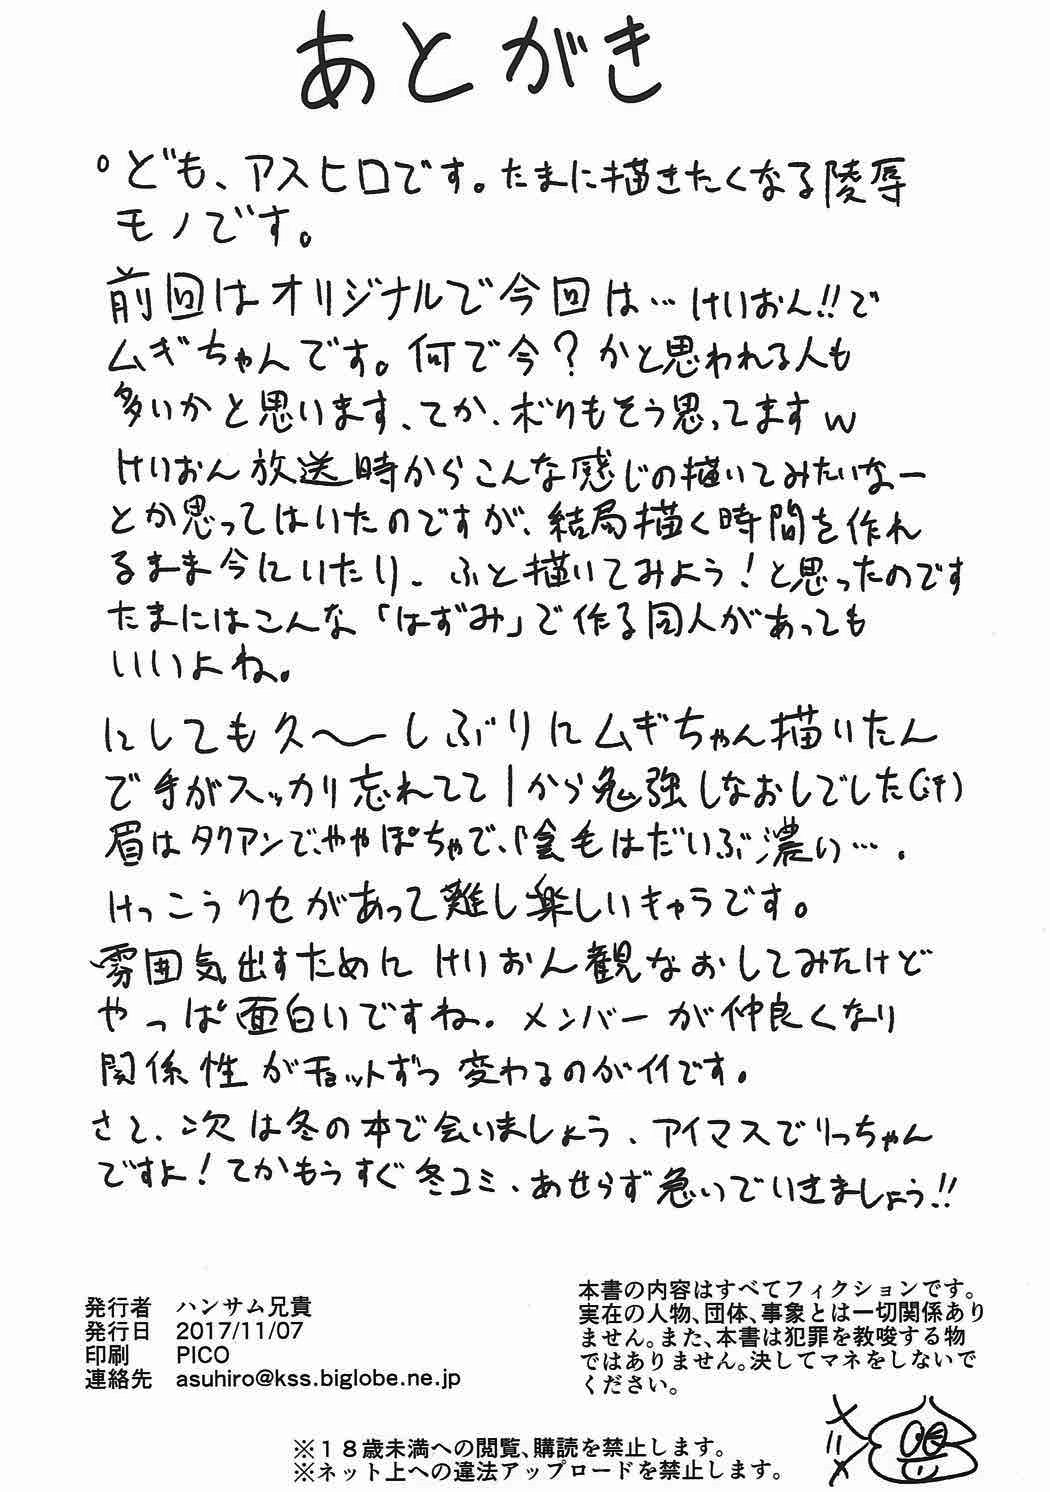 あとがき
°ども、アスヒロです。たまに描きたくなる陵辱
モノです。
前回はオリジナルで今回は…けいおん!!で
ムギちゃんです。何で今?かと思われる人も
多いかと思います、てか、ボクもそう思ってますw
けいおん放送時からこんな感じの描いてみたいなー
とか思ってはいたのですが、結局描く時間を作れ
るまま今にいたり、ふと描いてみよう!と思ったのです
たまにはこんな「はずみ」で作る同人があっても
いいよね。
にしても久〜しぶりにムギちゃん描いたん
で手がスッカリ忘れてて1から勉強しなおしでした(汗)
眉はタクアンで、ややぽちゃで、陰毛はだいぶ濃い….
けっこうクセがあって難し楽しいキャラです。
雰囲気出すためにけいおん観なおしてみたけど
やっぱ面白いですね。メンバーが仲良くなり
関係性がチョットずつ変わるのがイイです。
さて、次は冬の本で会いましょう、アイマスでりっちゃん
ですよ!てかもうすぐ冬コミ、あせらず急いでいきましょう!!
発行者 ハンサム兄貴
発行日 2017/11/07
印刷 PICO
連絡先 asuhiro@kss.biglobe.ne.jp
本書の内容はすべてフィクションです。
実在の人物、団体、事象とは一切関係あり
ません。また、本書は犯罪を教唆する物
ではありません。決してマネをしないで
ください。
※18歳未満への閲覧、購読を禁止します。
※ネット上への違法アップロードを禁止します。